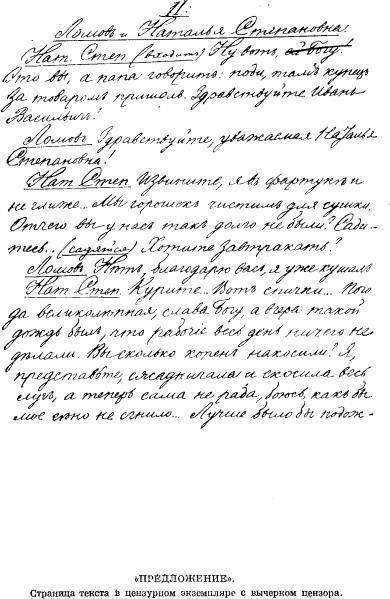 II.
Ломовъ и Наталья Степановна.
Нат. Степ (входитъ) Ну вотъ, ей Богу!
Это вы, а папа говоритъ: поди, тамъ купецъ
за товаромъ пришолъ. Здравствуйте Иванъ
Васильичъ!
Ломовъ Здравствуйте, уважаемая Наталья
Степановна!
Нат Степ Извините, я въ фартукѣ и
неглиже... Мы горошек чистимъ для сушки.
Отчего вы у насъ такъ долго не были? Сади-
тесь... (садятся) Хотите завтракать?
Ломовъ Нѣтъ, благодарю васъ, я уже кушалъ
Нат Степ. Курите... Вотъ спички... Пого
да великолѣпная, слава Богу, а вчера такой
дождь былъ, что рабочіе весь день ничего не
дѣлали. Вы сколько копенъ накосили? Я,
представьте, сжадничала и скосила весь
лугъ, а теперь сама не рада, боюсь, какъ бы
мое сѣно не сгнило... Лучше было бы подож-
«ПРЕДЛОЖЕНИЕ».
Страница текста в цензурном экземпляре с вычерком цензора.